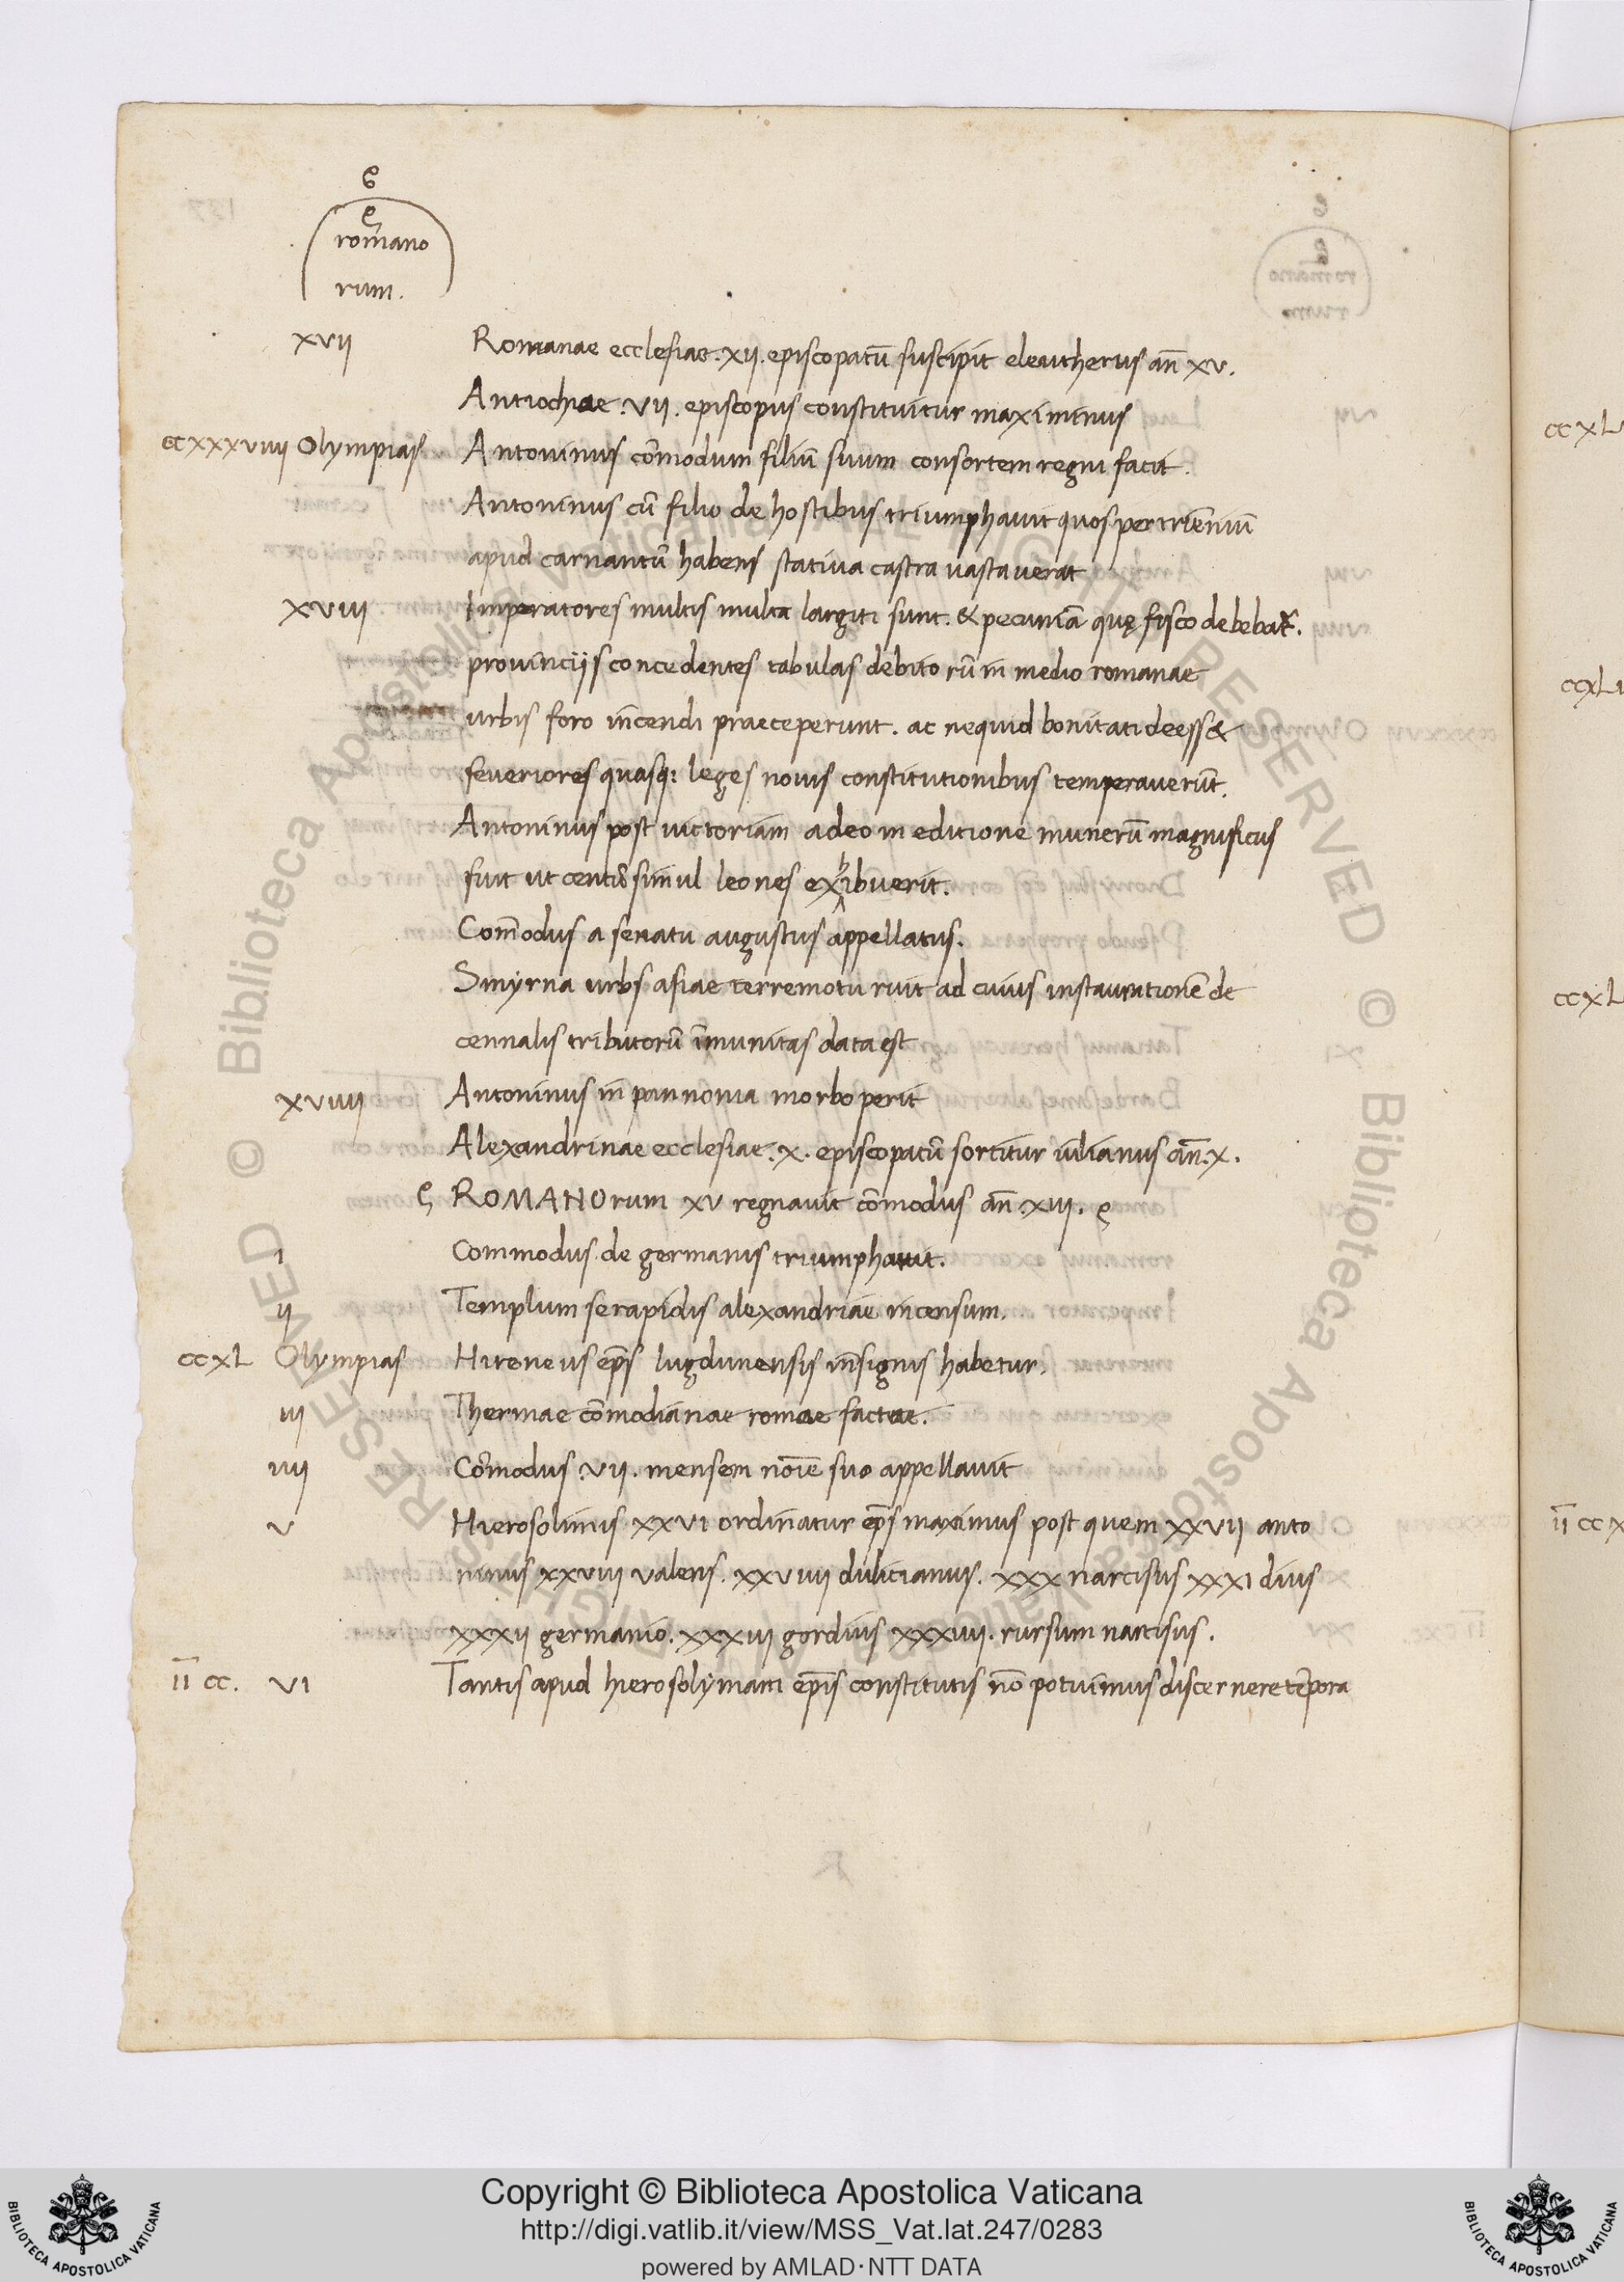 romano
rum.
xvii Romanae ecclesiae. xii. episcopatū suscipit eleutherus an̄ xv.
Antiochiae. vii. episcopus constituitur maximinus
ccxxxviiii Olympias Antoninus cōmodum filiū suum consortem regni facit.
Antoninus cū filio de hostibus triumphauit quos per triēniū
apud carnantū habens statiua castra uastauerat
xviii Imperatores multis multa largiti sunt. & pecuniā quę fisco debebat᷑.
prouinciis concedentes tabulas debitorū in medio romanae
urbis foro incendi praeceperunt. ac nequid bonitati deess&
seueriores quasq: leges nouis constitutionibus temperauerūt.
Antoninus post uictoriam adeo in editione munerū magnificus
fuit ut centū simul leones exhibuerit.
Com̄odus a senatu augustus appellatus.
Smyrna urbs asiae terremotu ruit ad cuius instaurationē de
cennalis tributorū īmunitas data est
xviiii Antoninus in pannonia morbo perit
Alexandrinae ecclesiae. x. episcopatū sortitur iulianus an̄. x.
ROMANOrum xv regnauit cōmodus an̄. xiii.
i Commodus de germanis triumphauit.
ii Templum serapidis alexandriae incensum.
ccxL Olympias Hireneus ep̄s lugdunensis insignis habetur.
iii Thermae cōmodianae romae factae.
iiii Cōmodus. vii. mensem noīe suo appellauit
v Hierosolimis xxvi ordinatur ep̄s maximus post quem xxvii anto
ninus xxviii valens. xxviiii dulicianus. xxx narcisus xxxi dius
xxxii germanio. xxxiii gordius xxxiiii. rursum narcisus.
īī cc. vi Tantis apud hierosolymam ep̄is constitutis nō potuimus discernere tēpora
ccxL
ccxLi
ccxL
īī ccx
© Biblioteca Apostolica Vaticana ALL RIGHTS RESERVED
Copyright © Biblioteca Apostolica Vaticana
http://digi.vatlib.it/view/MSS_Vat.lat.247/0283
powered by AMLAD·NTT DATA
BIBLIOTECA APOSTOLICA VATICANA
BIBLIOTECA APOSTOLICA VATICANA